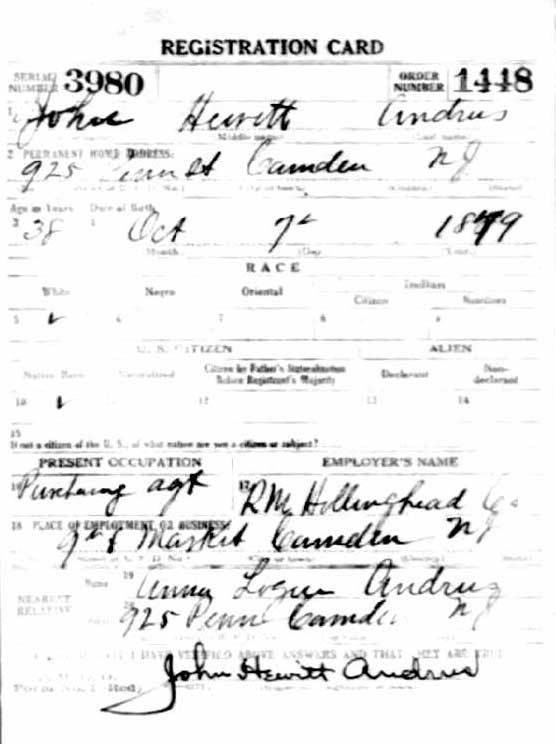 REGISTRATION CARD
SERIAL NUMBER 3980 ORDER NUMBER 1448
1 John Hewitt Andrus
Middle name Last name
2 PERMANENT HOME ADDRESS:
925 Penn St Camden NJ
Age in Years Date of Birth
3 38 4 Oct 7th 1879
Month Day Year
RACE
White Negro Oriental Indian
Citizen Noncitizen
5 ✓ 6 7 8 9
U. S. CITIZEN ALIEN
Native Born Naturalized Citizen by Father's Naturalization Before Registrant's Majority Declarant Non-declarant
10 ✓ 12 13 14
15
If not a citizen of the U. S., of what nation are you a citizen or subject?
PRESENT OCCUPATION EMPLOYER'S NAME
16 Purchasing agt 17 R M Hollingshead Co
18 PLACE OF EMPLOYMENT OR BUSINESS:
9th & Market Camden NJ
NEAREST RELATIVE Name 19 Anna Logue Andrus
20 925 Penn Camden NJ
I HAVE VERIFIED ABOVE ANSWERS AND THAT THEY ARE TRUE
Form No. 1 (Red) John Hewitt Andrus